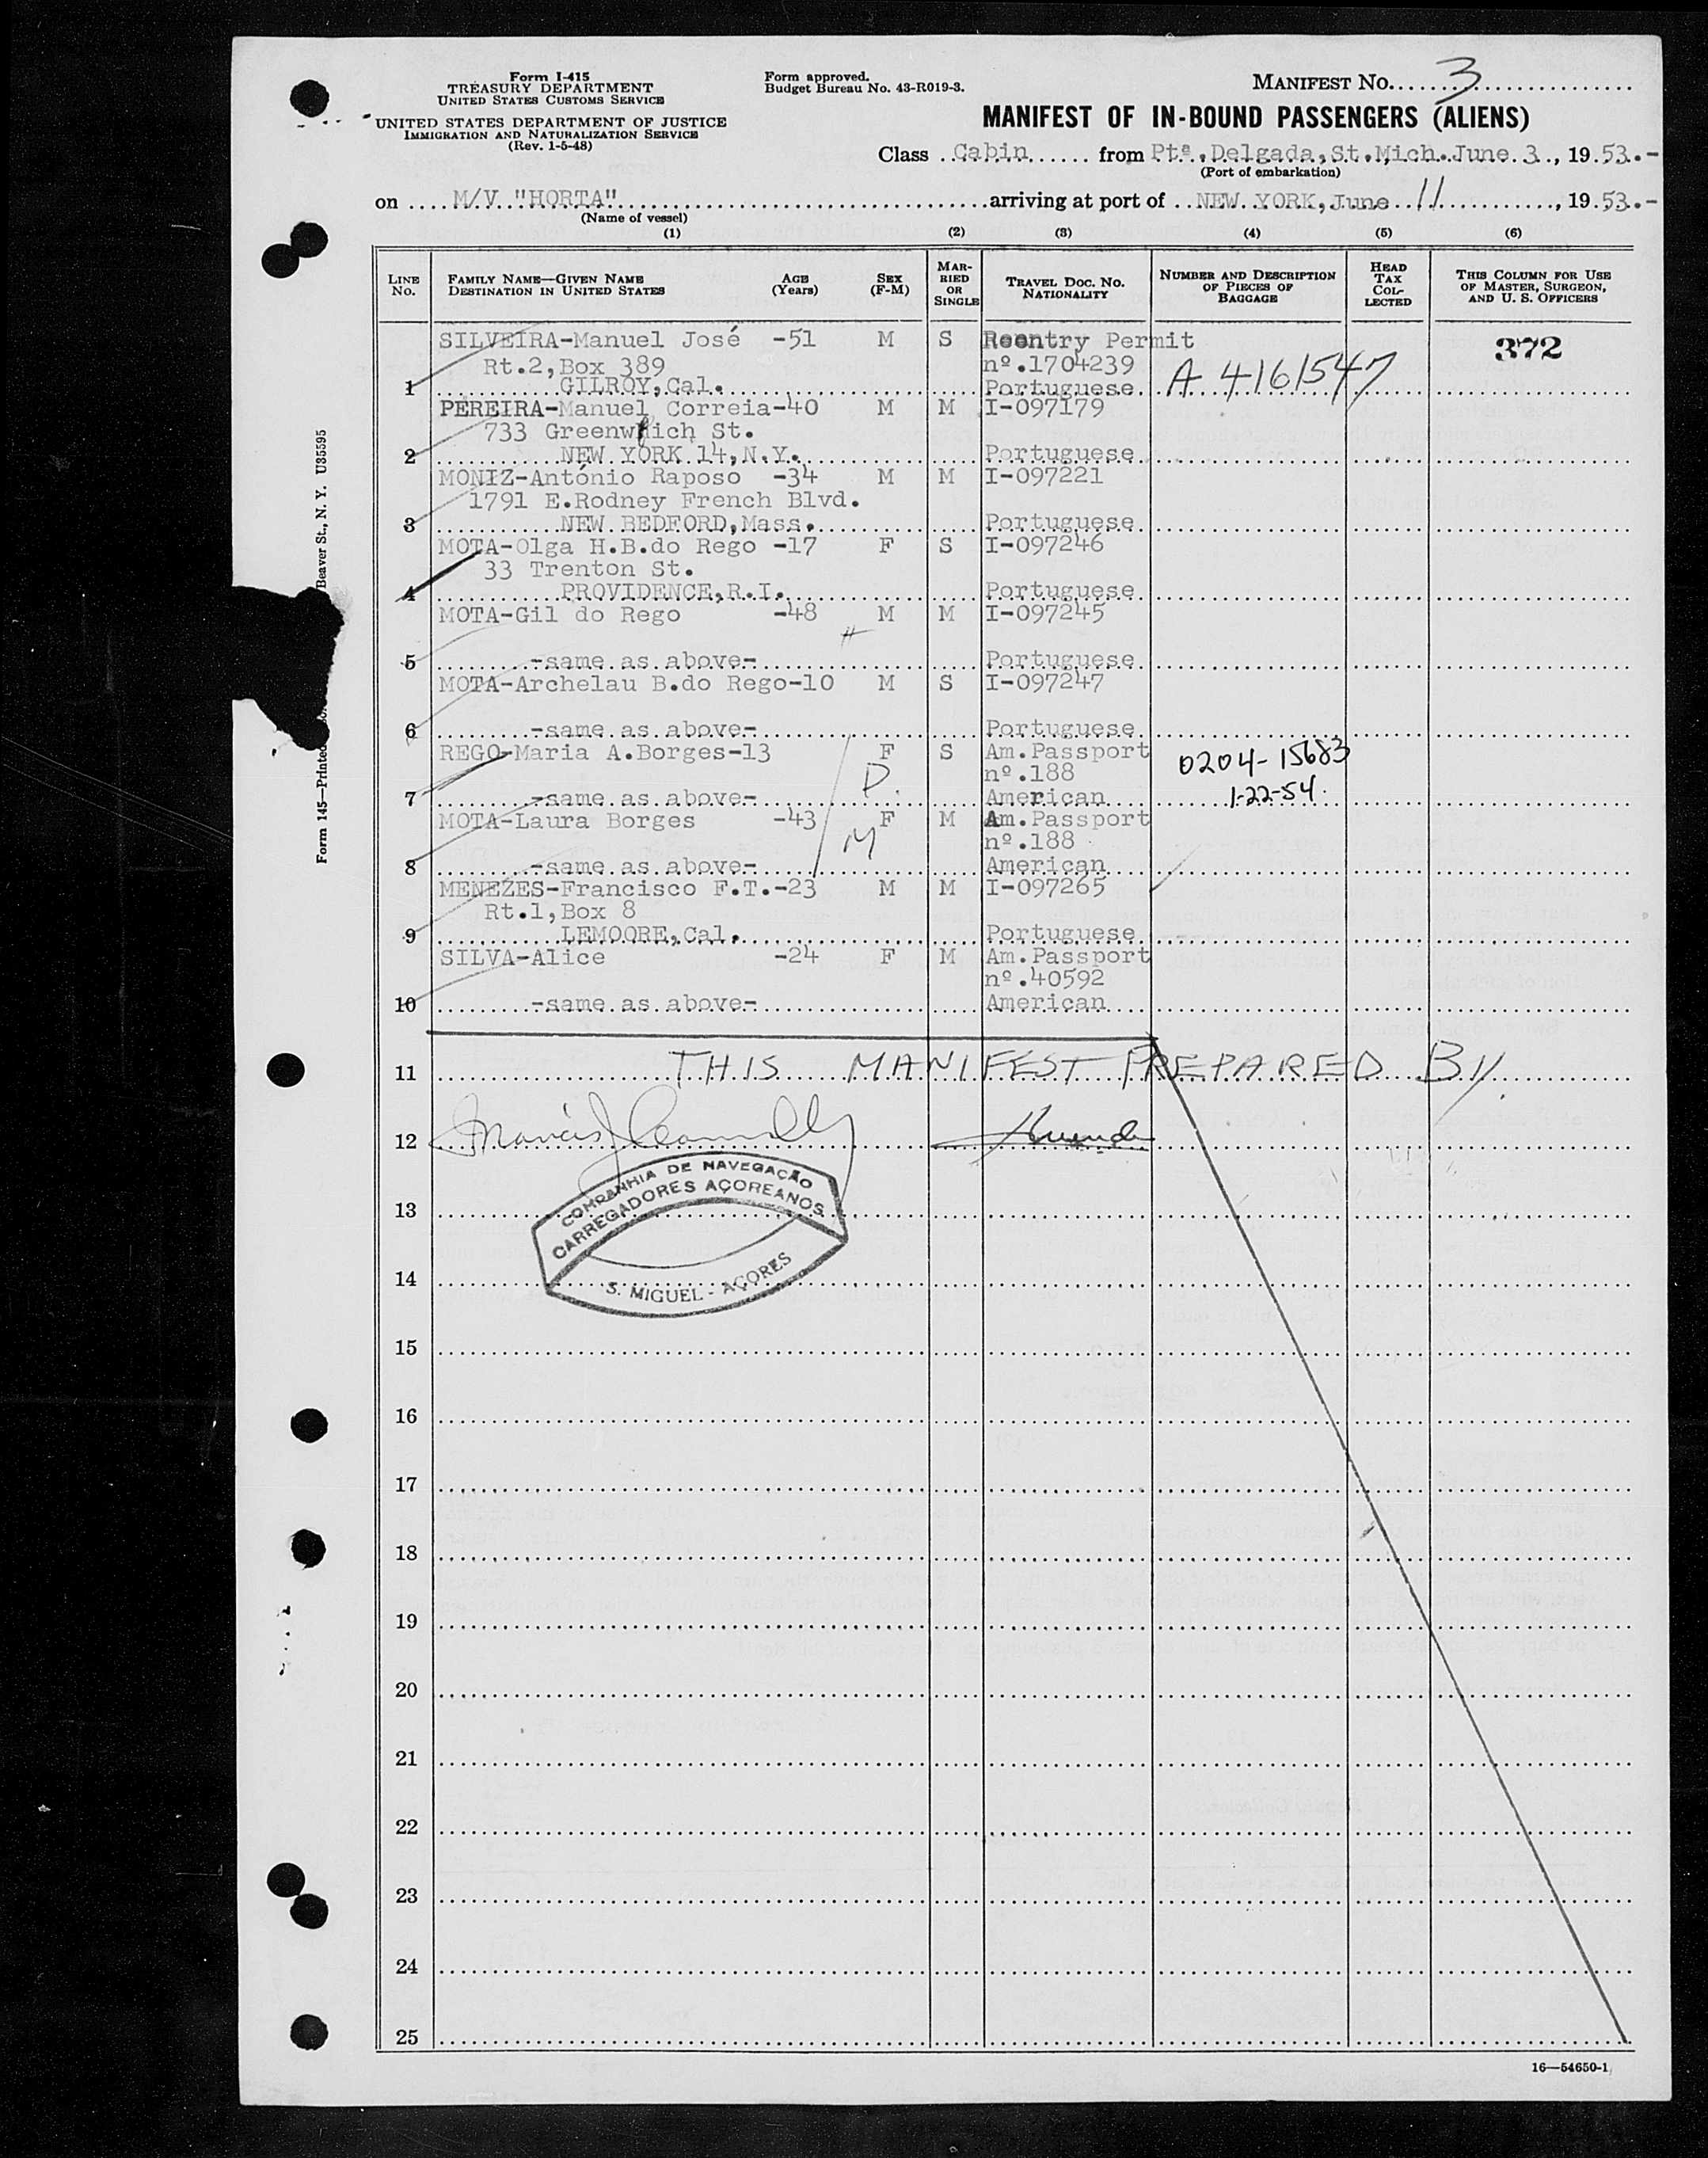 Form I-415
TREASURY DEPARTMENT
UNITED STATES CUSTOMS SERVICE
UNITED STATES DEPARTMENT OF JUSTICE
IMMIGRATION AND NATURALIZATION SERVICE
(Rev. 1-5-48)
Form approved.
Budget Bureau No. 43-R019-3.
MANIFEST NO. 3
MANIFEST OF IN-BOUND PASSENGERS (ALIENS)
Class Cabin from Ptª.Delgada,St.Mich.June 3, 1953.-
(Port of embarkation)
on M/V "HORTA" arriving at port of NEW YORK,June 11, 1953.-
(Name of vessel)
(1) (2) (3) (4) (5) (6)
LINE NO. FAMILY NAME—GIVEN NAME DESTINATION IN UNITED STATES AGE (Years) SEX (F-M) MARRIED OR SINGLE TRAVEL DOC. NO. NATIONALITY NUMBER AND DESCRIPTION OF PIECES OF BAGGAGE HEAD TAX COLLECTED THIS COLUMN FOR USE OF MASTER, SURGEON, AND U. S. OFFICERS
SILVEIRA-Manuel José -51 M S Reentry Permit 372
Rt.2,Box 389 nº.1704239
1 GILROY,Cal. Portuguese A 4161547
PEREIRA-Manuel Correia-40 M M I-097179
733 Greenwhich St.
2 NEW YORK 14,N.Y. Portuguese
MONIZ-António Raposo -34 M M I-097221
1791 E.Rodney French Blvd.
3 NEW BEDFORD,Mass. Portuguese
MOTA-Olga H.B.do Rego -17 F S I-097246
33 Trenton St.
4 PROVIDENCE,R.I. Portuguese
MOTA-Gil do Rego -48 M M I-097245
5 -same as above- Portuguese
MOTA-Archelau B.do Rego-10 M S I-097247
6 -same as above- Portuguese
REGO-Maria A.Borges-13 F S Am.Passport 0204-15683
D nº.188
7 -same as above- American 1-22-54
MOTA-Laura Borges -43 F M Am.Passport
M nº.188
8 -same as above- American
MENEZES-Francisco F.T.-23 M M I-097265
Rt.1,Box 8
9 LEMOORE,Cal. Portuguese
SILVA-Alice -24 F M Am.Passport
nº.40592
10 -same as above- American
11 THIS MANIFEST PREPARED BY
12
COMPANHIA DE NAVEGAÇÃO
CARREGADORES AÇOREANOS
13
S. MIGUEL - AÇORES
14
15
16
17
18
19
20
21
22
23
24
25
16—54650-1
Form 145—Printed
Beaver St., N. Y. U35595